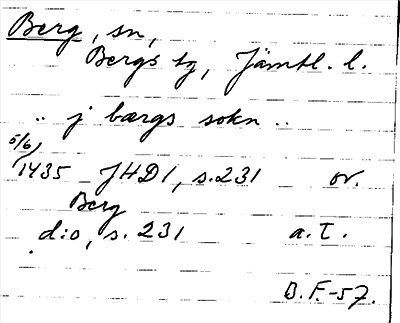 Berg, sn,
Bergs tg, Jämtl. l.
.. j bærgs sokn ..
5/6
1435 JHD1, s.231 or.
Berg
d:o, s. 231 a.t.
B.F.-57.